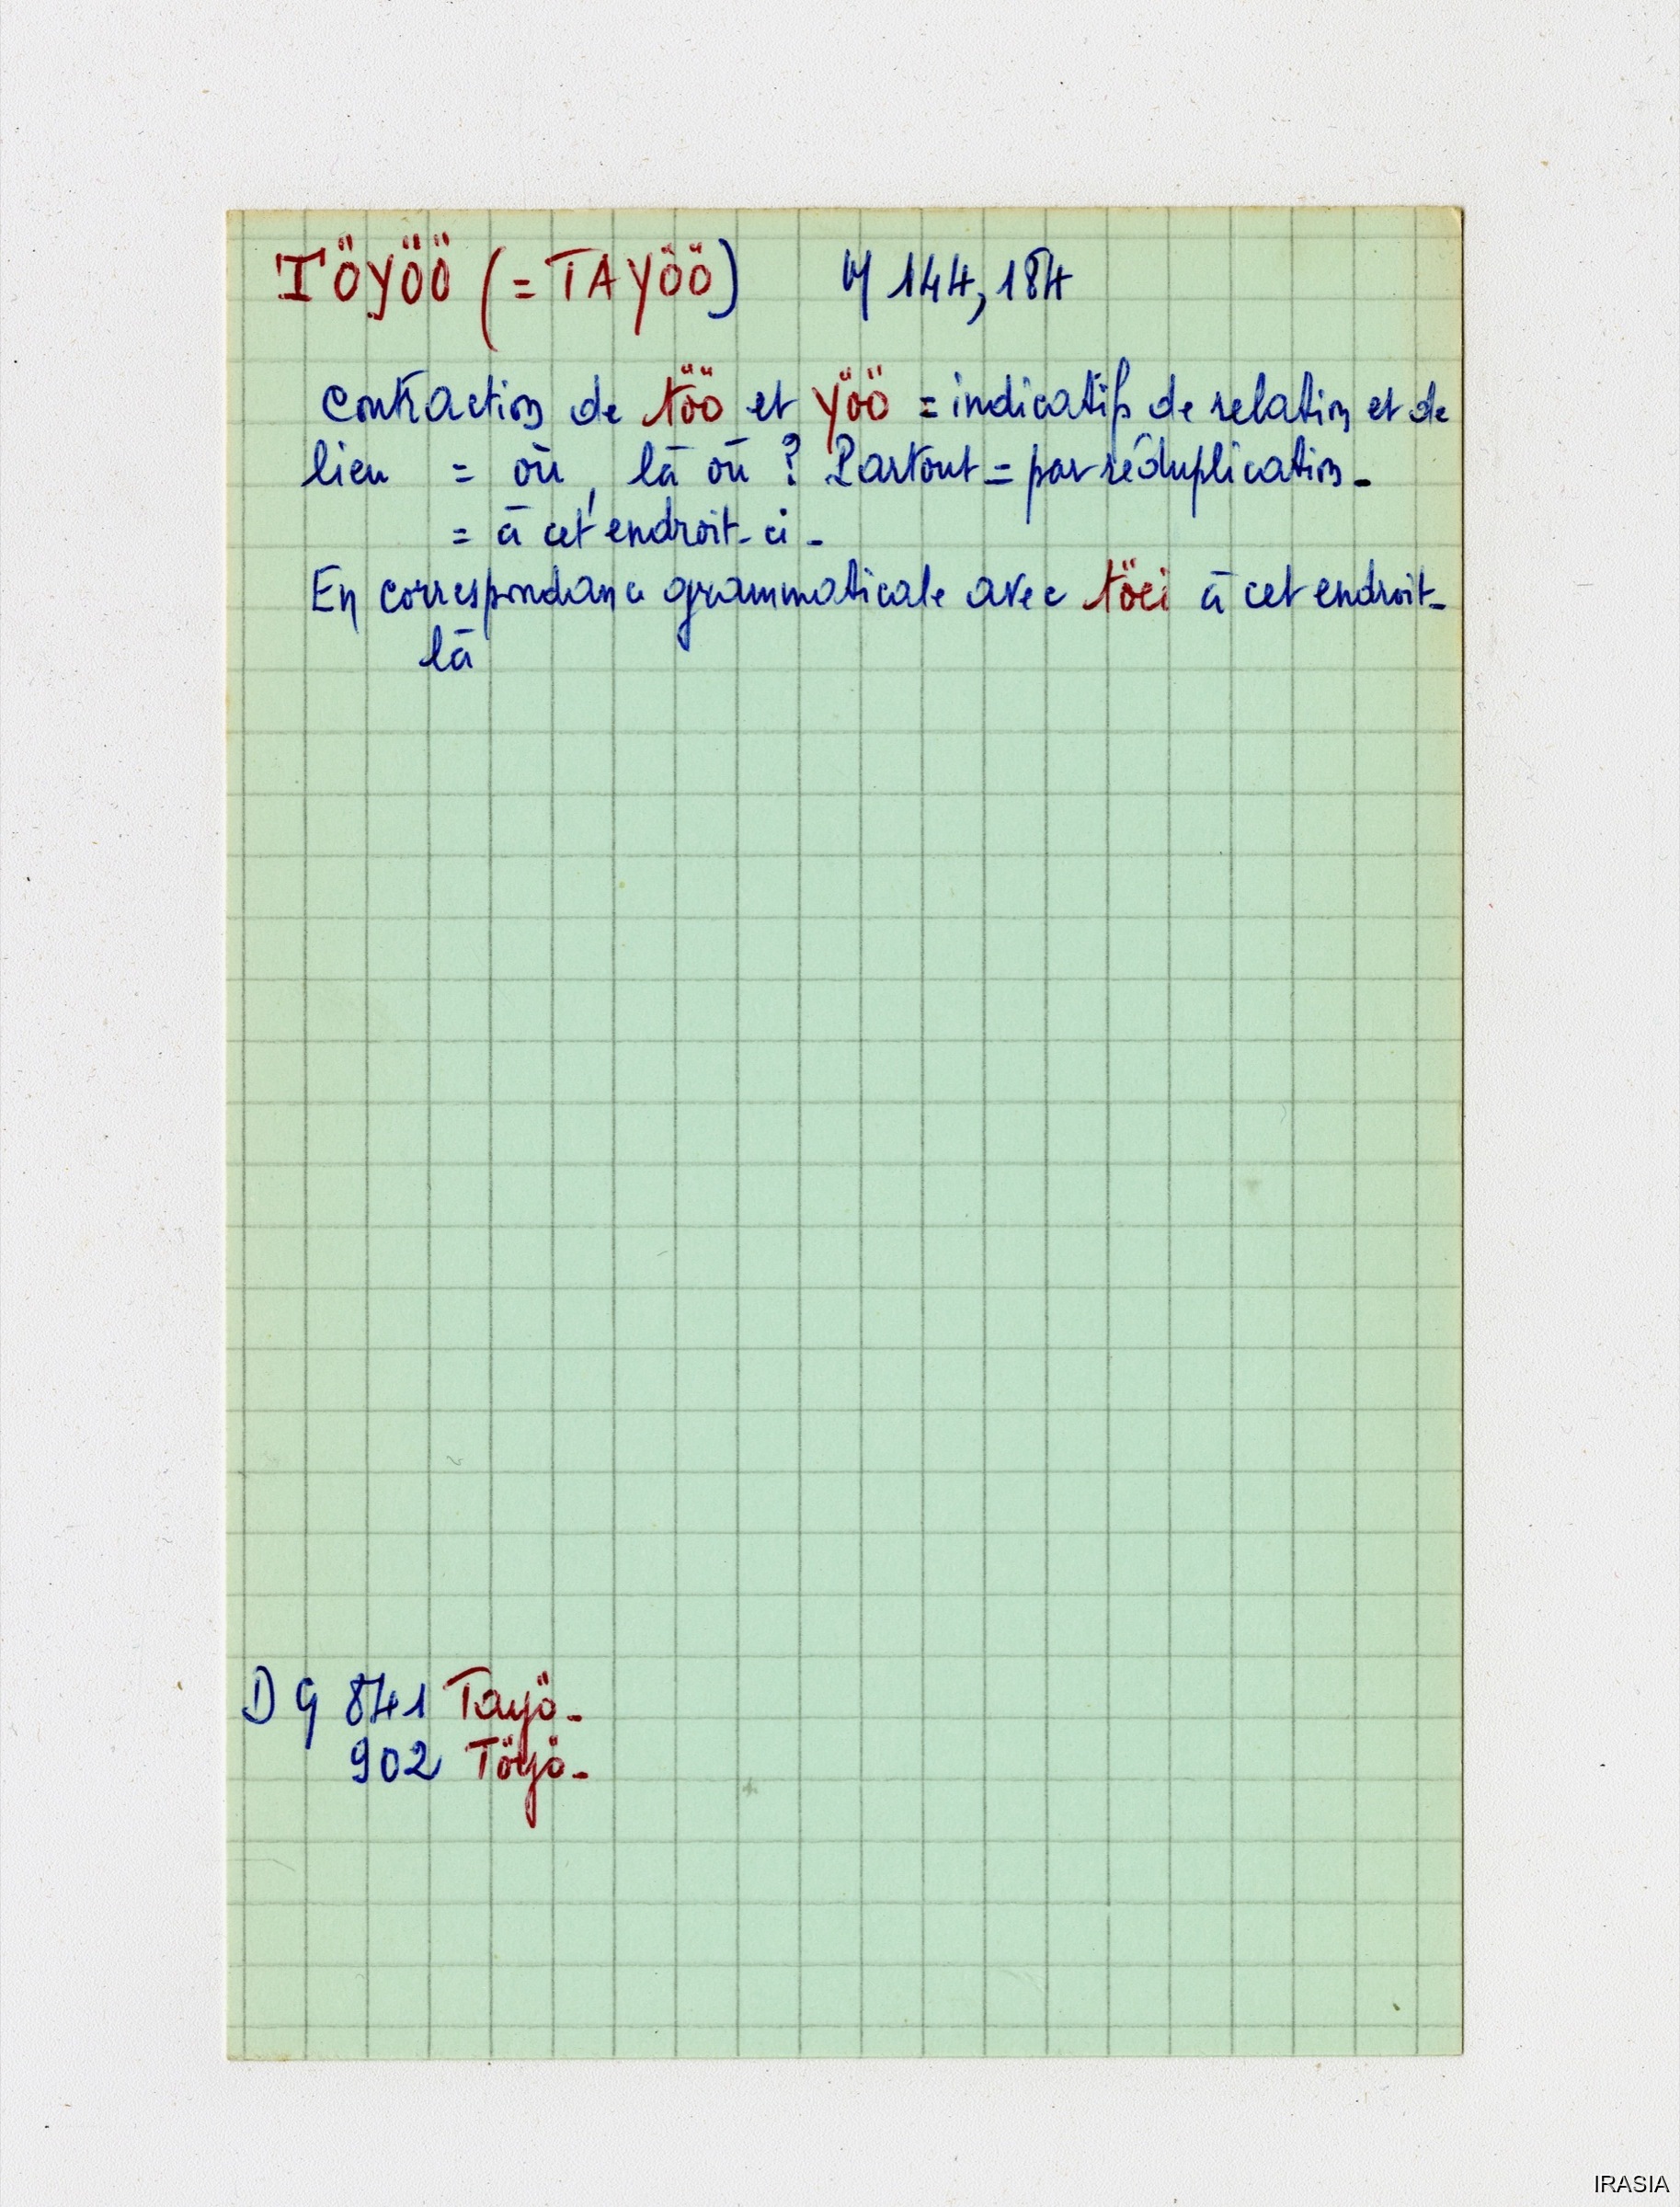 TÖYÖÖ (= TAYÖÖ) 144, 184
contraction de töö et yöö = indicatifs de relation et de
lieu = où, là où ? Partout = par réduplication -
= à cet endroit-ci -
En correspondance grammaticale avec töei à cet endroit-
là
D G 841 Tayö -
902 Töyö -
IRASIA